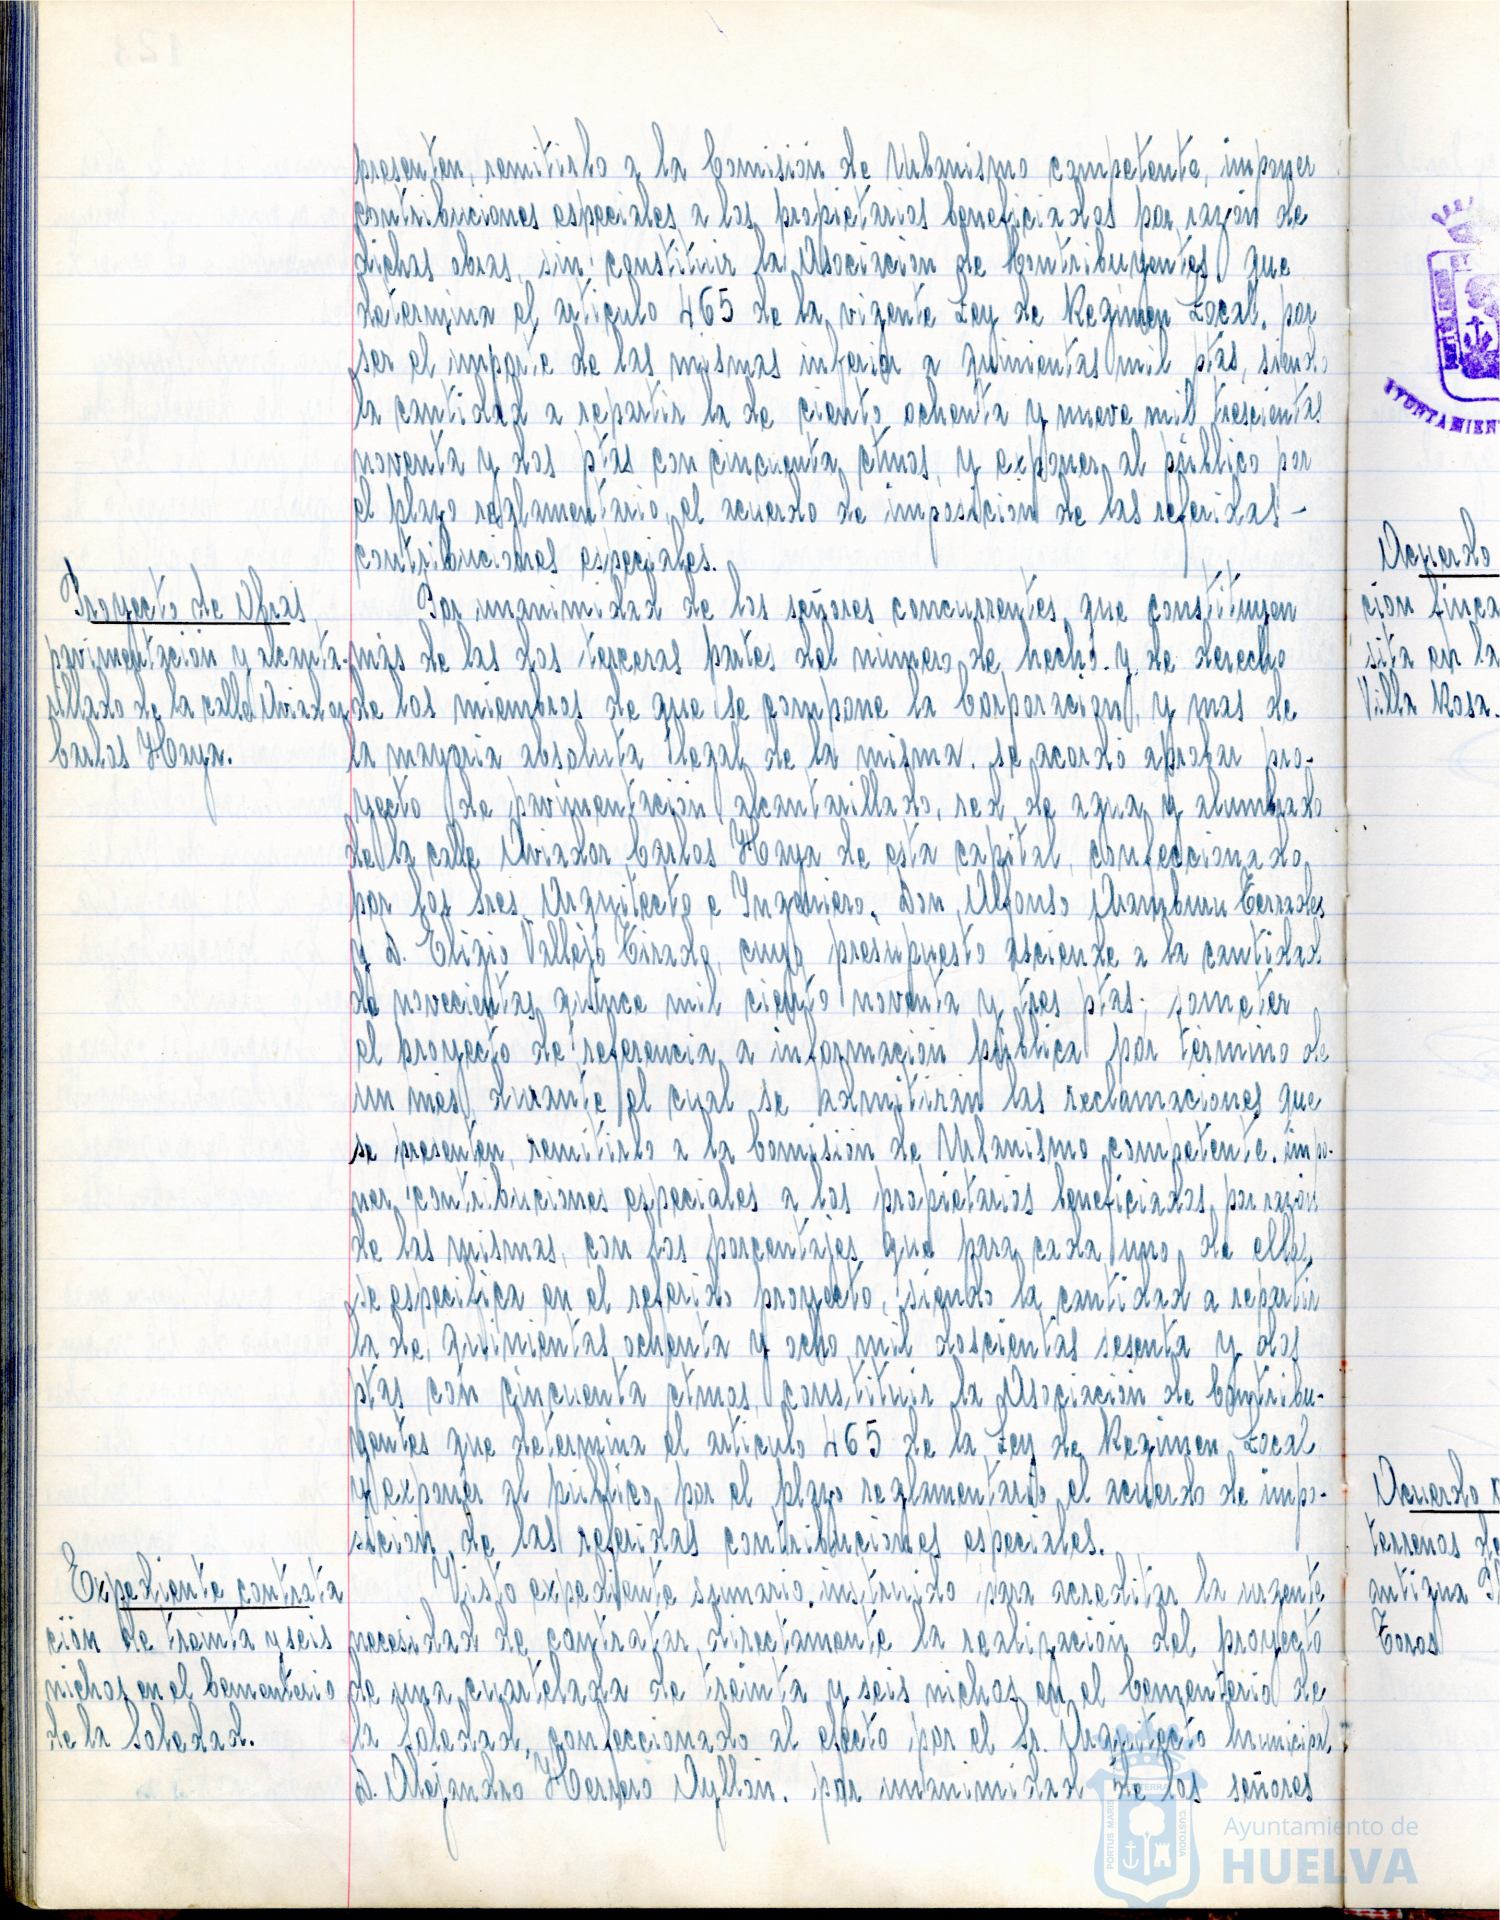 presenten, remitirlo a la Comisión de Urbanismo competente, imponer
contribuciones especiales a los propietarios beneficiados por razón de
dichas obras, sin constituir la Asociación de Contribuyentes que
determina el artículo 465 de la vigente Ley de Regimen Local, por
ser el importe de las mismas inferior a quinientas mil ptas, siendo
la cantidad a repartir la de ciento ochenta y nueve mil trescientas
noventa y dos ptas con cincuenta ctmos, y exponer al público por
el plazo reglamentario, el acuerdo de imposición de las referidas -
contribuciones especiales.
Proyecto de Obras,
pavimentación y alcanta-
rillado de la calle Aviador
Carlos Haya.
Por unanimidad de los señores concurrentes que constituyen
más de las dos terceras partes del número de hecho y de derecho
de los miembros de que se compone la Corporación, y mas de
la mayoria absoluta legal de la misma, se acordó aprobar pro-
yecto de pavimentación, alcantarillado, red de agua y alumbrado
de la calle Aviador Carlos Haya de esta capital, confeccionado
por los Sres. Arquitecto e Ingeniero, Don Alfonso Aramburu Terrades
y D. Eligio Vallejo Tirado, cuyo presupuesto asciende a la cantidad
de novecientas quince mil ciento noventa y tres ptas; someter
el proyecto de referencia a información pública por término de
un mes, durante el cual se admitirán las reclamaciones que
se presenten, remitirlo a la Comisión de Urbanismo competente, impo-
ner contribuciones especiales a los propietarios beneficiados por razón
de las mismas, con los porcentajes que para cada uno de ellos
se especifica en el referido proyecto, siendo la cantidad a repartir
la de quinientas ochenta y ocho mil doscientas sesenta y dos
ptas con cincuenta ctmos, constituir la Asociación de Contribu-
yentes que determina el artículo 465 de la Ley de Regimen Local
y exponer al público por el plazo reglamentario el acuerdo de impo-
sición de las referidas contribuciones especiales.
Expediente contrata
ción de treinta y seis
nichos en el Cementerio
de la Soledad.
Visto expediente sumario instruido para acreditar la urgente
necesidad de contratar directamente la realización del proyecto
de una cuartelada de treinta y seis nichos en el Cementerio de
la Soledad, confeccionado al efecto por el Sr. Arquitecto Municipal
D. Alejandro Herrero Ayllón, por unanimidad de los señores
Acuerdo
ción finca
sita en la
Villa Rosa.
Acuerdo
terrenos de
antigua
Toros
AYUNTAMIEN
PORTUS MARIS
TERRA
CUSTODIA
Ayuntamiento de
HUELVA